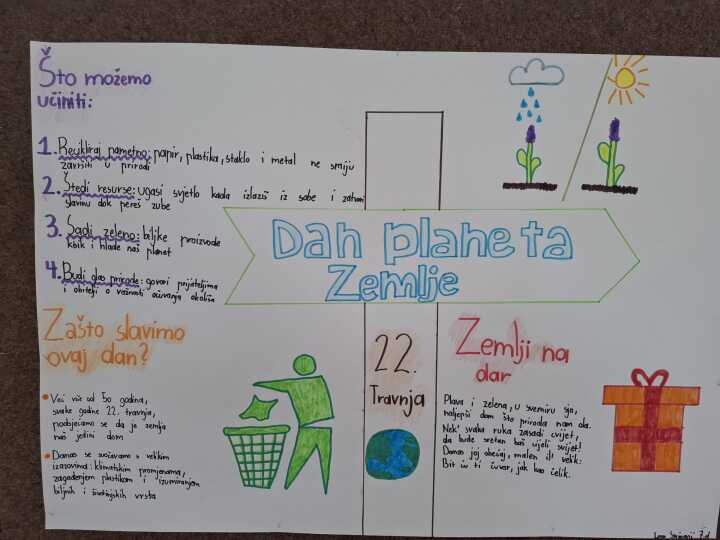 Što možemo
učiniti:
1. Recikliraj pametno: papir, plastika, staklo i metal ne smiju
završiti u prirodi
2. Štedi resurse: ugasi svjetlo kada izlaziš iz sobe i zatvori
slavinu dok pereš zube
3. Sadi zeleno: biljke proizvode
kisik i hlade naš planet
4. Budi glas prirode: govori prijateljima
i obitelji o važnosti očuvanja okoliša
Dan planeta
Zemlje
Zašto slavimo
ovaj dan?
Već više od 50 godina,
svake godine 22. travnja,
podsjećamo se da je zemlja
naš jedini dom
Danas se suočavamo s velikim
izazovima: klimatskim promjenama,
zagađenjem plastikom i izumiranjem
biljnih i životinjskih vrsta
22.
Travnja
Zemlji na
dar
Plava i zelena, u svemiru sja,
najljepši dom što priroda nam da.
Nek' svaka ruka zasadi cvijet,
da bude sretan baš cijeli svijet!
Danas joj obećaj, malen il' velik:
Bit ću ti čuvar, jak kao čelik.
7.d